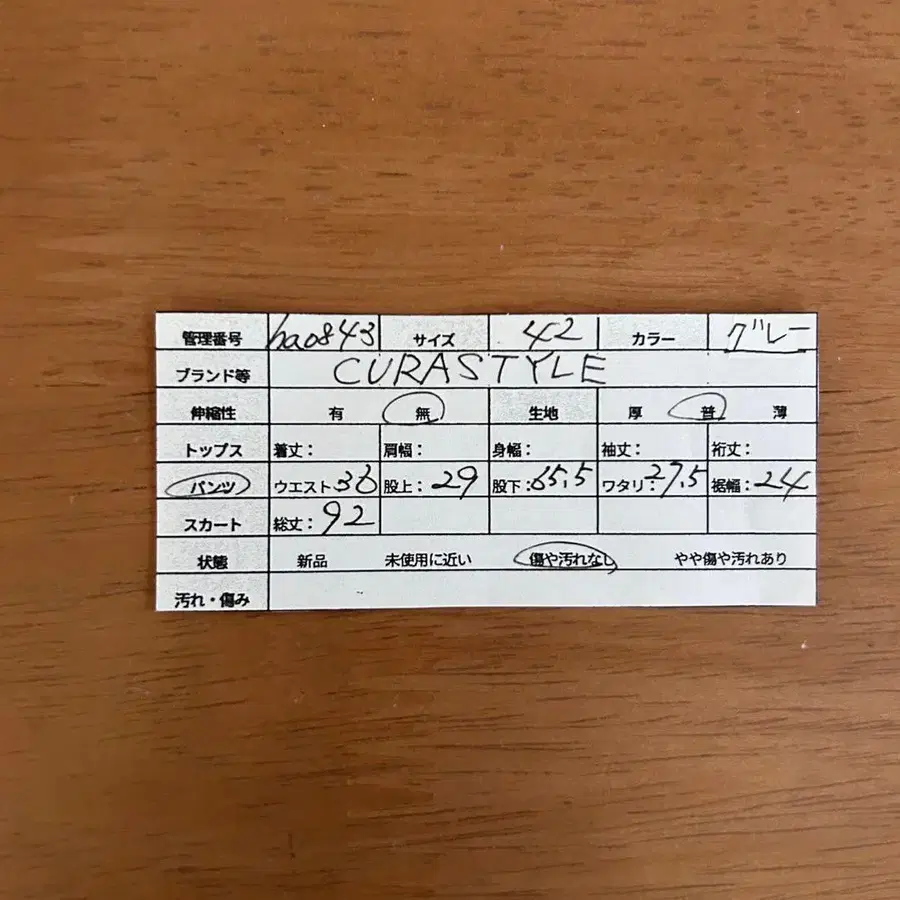 管理番号 ha0843 サイズ 42 カラー グレー
ブランド等 CURASTYLE
伸縮性 有 無 生地 厚 普 薄
トップス 着丈: 肩幅: 身幅: 袖丈: 裄丈:
パンツ ウエスト:36 股上:29 股下:65.5 ワタリ:27.5 裾幅:24
スカート 総丈:92
状態 新品 未使用に近い 傷や汚れなし やや傷や汚れあり
汚れ・傷み